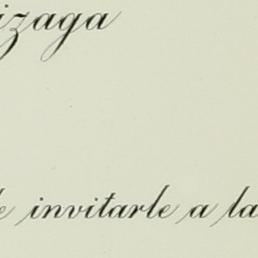 izaga
e invitarle a la